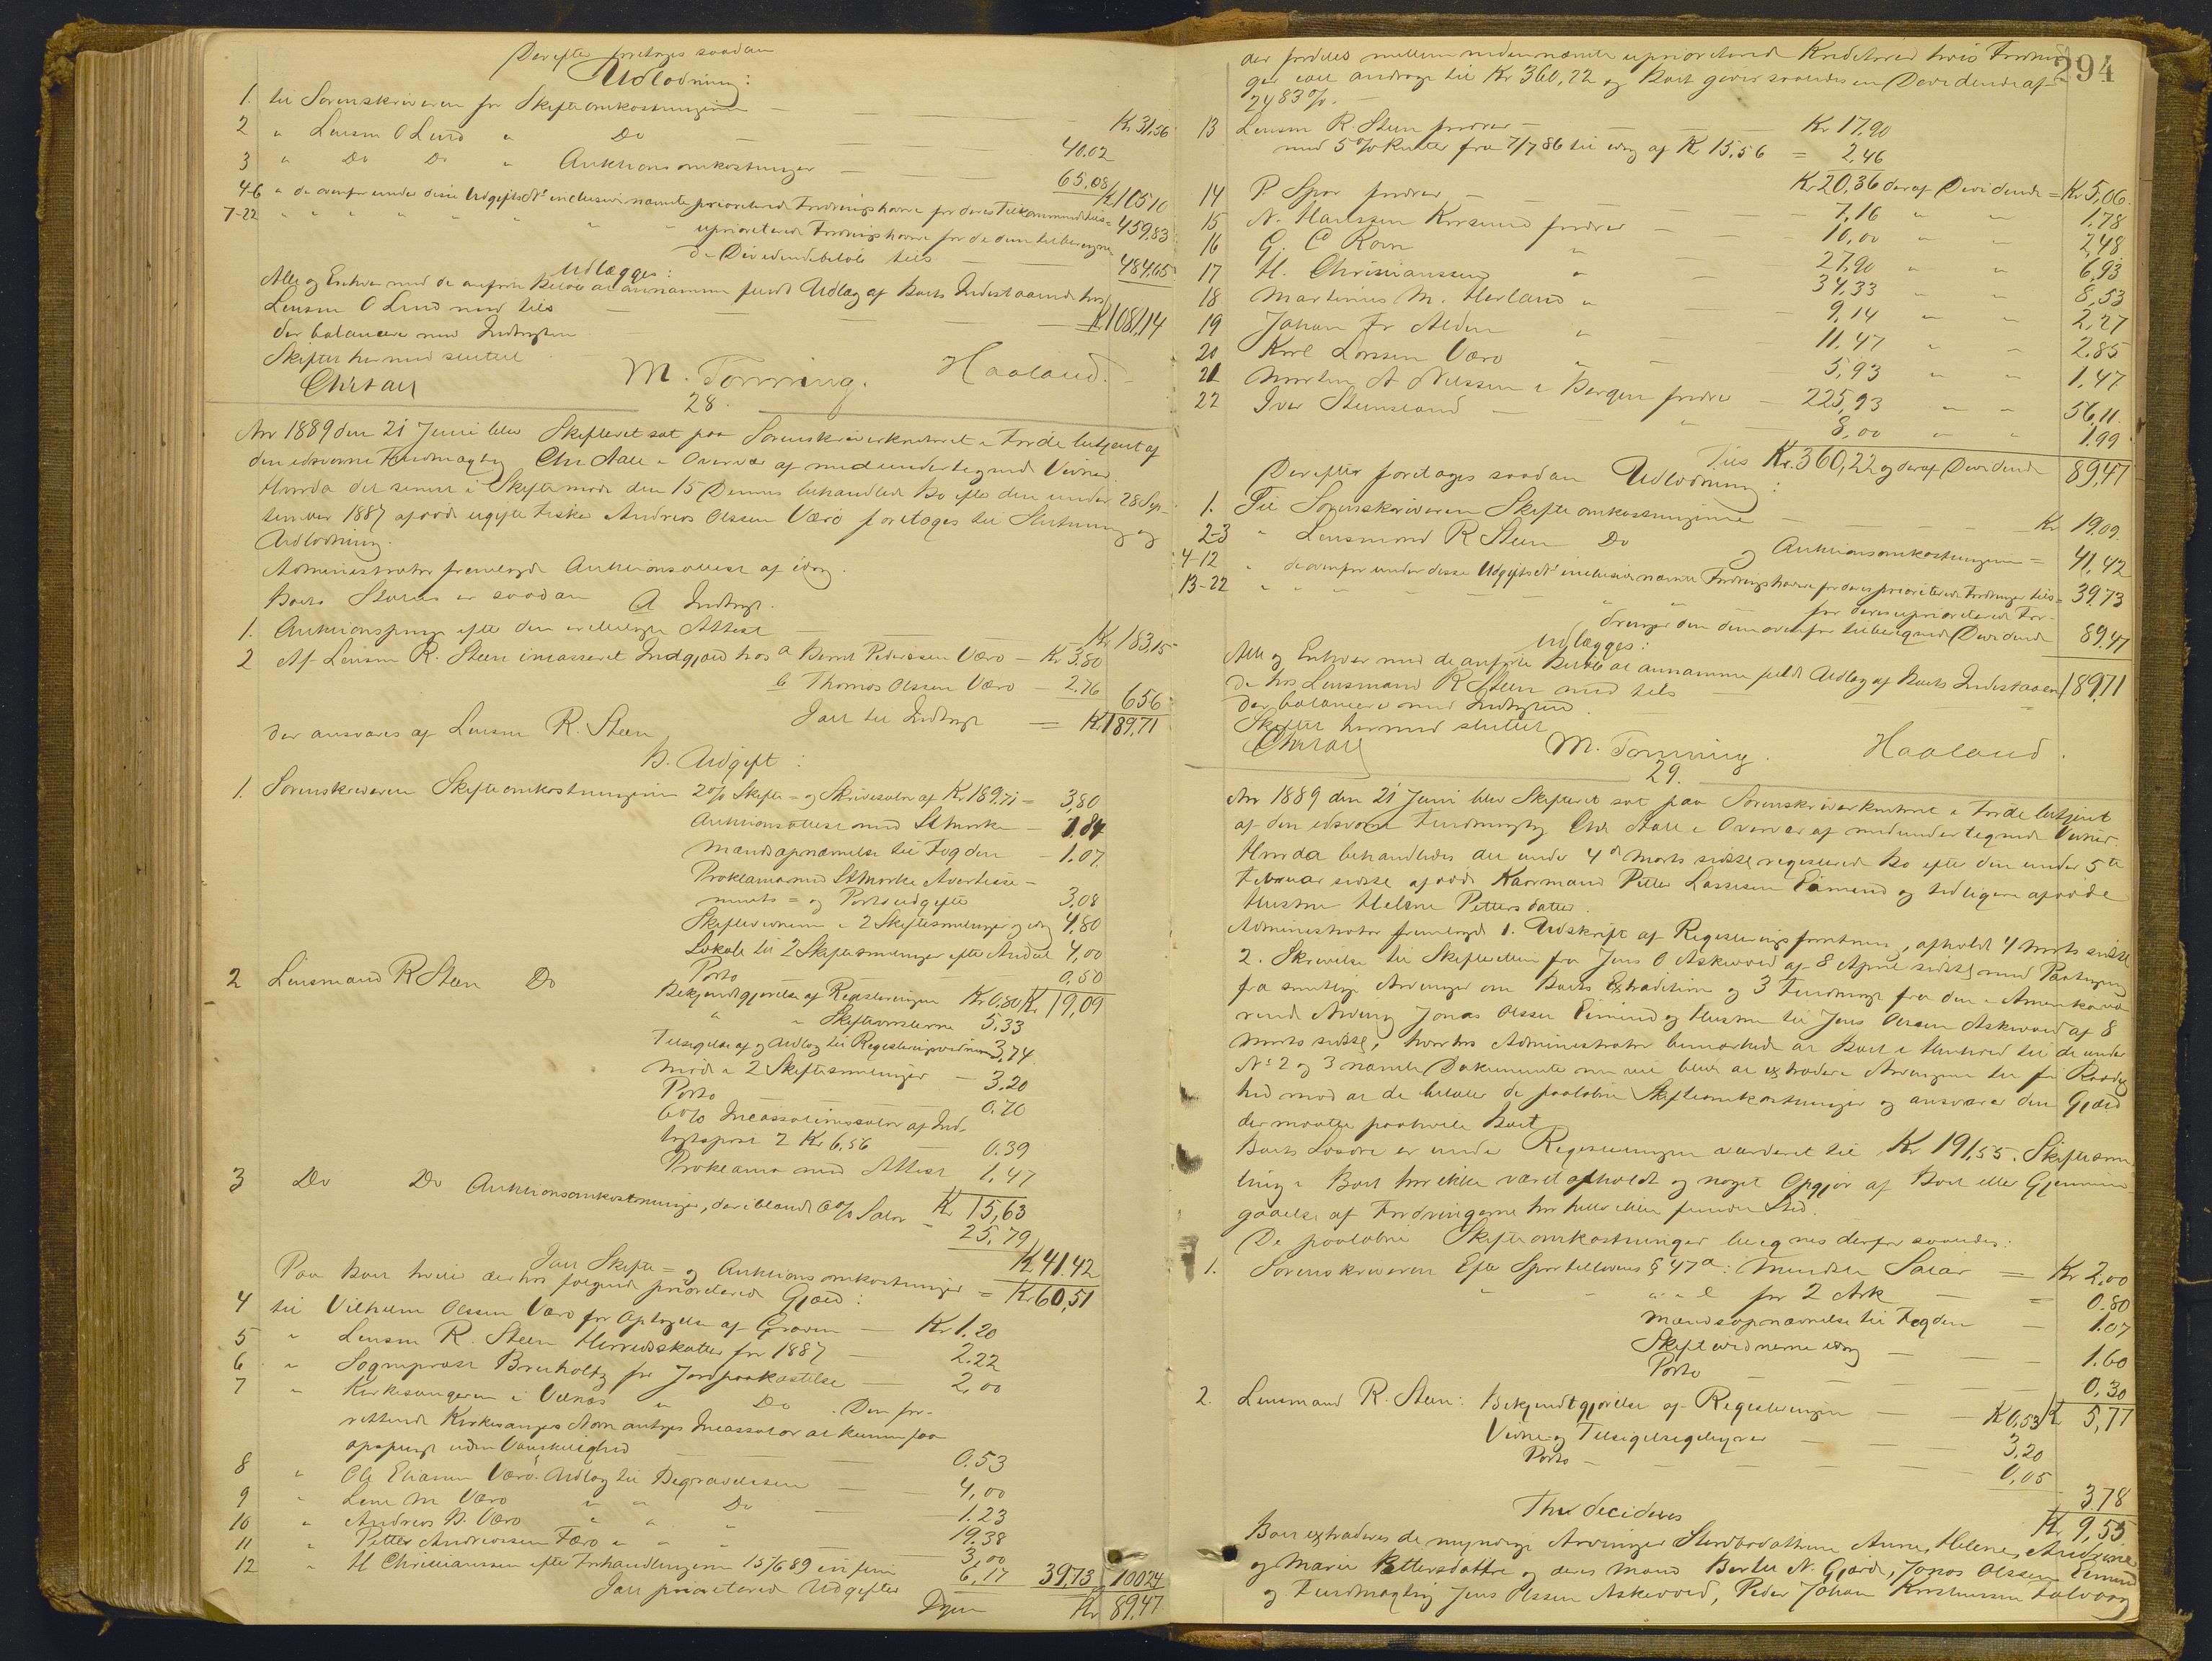 Derefter foretoges saadan
Udlodning:
1. til Sorenskriveren for Skifteomkostningerne — Kr 31,56
2 " Lensm O Lund " Do 40.02
3 " Do Do " Auktionsomkostninger — 65,08 Kr 105 10
4-6 " de ovenfor under disse Udgiftsdto inclusive nævnte prioriterede Fordringshavere for deres Tilkommende tils = 459,83
7-22 " " " " " " " uprioriterede Fordringshavere for de dem tilberegne-
de Dividendebeløb tils — 484,65
Udlægges:
Alle og Enhver med de anførte Beløb at annamme fuldt Udlæg af Boets Indestaaende hos
Lensm O Lund med tils — Kr 1081,14
der balancere med Indtægten
Skiftet hermed sluttet
Chr Aall M. Tonning. Haaland.
28.
Aar 1889 den 21 Juni blev Skifteret sat paa Sorenskriverkontoret i Førde betjent af
den edsvorne Fuldmægtig Chr Aall i Overvær af medundertegnede Vidner.
Hvorda det senest i Skiftemøde den 15 Dennes behandlede Bo efter den under 28 Sep-
tember 1887 afdøde ugifte Fisker Andreas Olssen Værø foretoges til Slutning og
Udlodning.
Administrator fremlagde Auktionsattest af idag.
Boets Status er saadan A Indtægt.
1. Auktionspenge efter den vedlagte Attest — Kr 183,15
2 Af Lensm R. Steen incasseret Indgjæld hos a Bernt Pederssen Værø — Kr 3.80
b Thomas Olssen Værø — 2.76 6 56
Ialt til Indtægt = Kr 189,71
der ansvares af Lensm R. Steen
B. Udgift:
1. Sorenskriveren Skifteomkostningerne 2% Skifte= og Skrivesalær af Kr 189.71 = 3,80
Auktionsattest med St.Mærke — 1.84
Mandsopnævnelse til Fogden — 1.07
Proklama med St.Mærke Avertisse-
ments= og Portoudgifter 3.08
Skiftevidnerne i 2 Skiftesamlinger og idag 4,80
Lokale til 2 Skiftesamlinger efter Andel 4,00
Porto 0,50
2 Lensmand R Steen Do Bekjendtgjørelse af Registreringen Kr 0,80 Kr 19,09
" " Skiftesamlingerne 5.33
Tilsigelse af og Udlæg til Registreringsvidnerne 3,74
Møde i 2 Skiftesamlinger — 3.20
Porto 0.70
6% Incassationssalær af Ind-
tægtspost 2 Kr 6,56 0.39
Proklama med Attest 1,47
Kr 15,63
3 Do Do Auktionsomkostninger, deriblandt 6% Salær — 25,79
Kr 41.42
Ialt Skifte= og Auktionsomkostninger = Kr 60,51
Paa Boet hviler derhos følgende prioriterede Gjæld:
4 til Vilhelm Olssen Værø for Optagelse af Graven — Kr 1.20
5 " Lensm R. Steen Herredsskatter for 1887 — 2.22
6 " Sogneprest Bruholtz for Jordpaakastelse — 2,00
7 " Kirkesangeren i Vilnæs " Do. Den for-
rettende Kirkesanger Navn antages Incassator at kunne faa
opspurgt uden Vanskelighed 0.53
8 " Ole Eliassen Værø Udlæg til Begravelsen — 4,00
9 " Lene M Værø " " Do 1.23
10 " Andreas B. Værø " " " 19.38
11 " Petter Andreassen Færø " " " 3,00
12 " H Christianssen efter Forhandlingerne 15/6 89 in fine 6,17 39,73 100 24
Ialt prioriterede Udgifter
Igjen Kr 89,47
294
der fordeles mellem nedennævnte uprioriterede Kreditorer hvis Fordrin-
ger ialt andrage til Kr 360,22 og Boet giver saaledes en Dividende af
24 83%. —
13 Lensm R. Steen fordrer — Kr 17.90
med 5% Renter fra 7/7 86 til idag af Kr 15,56 = 2,46
Kr 20,36 deraf Dividende = Kr 5,06.
14 P. Spor fordrer — 7,16 " " 1.78
15 N. Hanssen Korssund fordrer — 10,00 " " 2,48
16 G. C Ravn " 27,90 " " 6,93
17 H. Christianssen " 34,33 " " 8,53
18 Martinus M. Herland " 9,14 " " 2,27
19 Johan Fr Alden " 11,47 " " 2.85
20 Karl Larssen Værø " 5,93 " " 1,47
21 Morten A Nilssen i Bergen fordrer — 225,93 " " 56,11.
22 Iver Steinsland — " 8,00 " " 1.99
Tils Kr. 360,22 og deraf Dividende 89,47
Derefter foretoges saadan Udlodning:
1. Til Sorenskriveren Skifteomkostningerne — Kr 19,09.
2-3 " Lensmand R Steen Do og Auktionsomkostningerne = 41,42
4-12 " de ovenfor under disse Udgiftsdto inclusive nævnte Fordringshavere for deres prioriterede Fordringer tils = 39,73
13-22 " " " " " " for deres uprioriterede For-
dringer den dem ovenfor tilberegnede Dividende 89.47
Udlægges:
Alle og Enhver med de anførte Beløb at annamme fuldt Udlæg af Boets Indestaaen
de hos Lensmand R Steen med tils — 189,71
der balancere med Indtægten.
Skiftet hermed sluttet
Chr Aall M. Tonning. Haaland.
29.
Aar 1889 den 21 Juni blev Skifteret sat paa Sorenskriverkontoret i Førde betjent
af den edsvorne Fuldmægtig Chr Aall i Overvær af medundertegnede Vidner.
Hvorda behandledes det under 4de Marts sidstl registrerede Bo efter den under 5te
Februar sidstl afdøde Kaarmand Peter Lassesen Eimind og tidligere afdøde
Hustru Helene Pettersdatter.
Administrator fremlagde 1. Udskrift af Registreringsforretning, afholdt 4 Marts sidstl
2. Skrivelse til Skifteretten fra Jens O Askevold af 8 April sidstl med Paategning
fra samtlige Arvinger om Boets Extradition og 3 Fuldmagt fra den i Amerika væ
rende Arving Jonas Olssen Eimind og Hustru til Jens Olssen Askevold af 8
Marts sidstl, hvorhos Administrator bemærkede at Boet i Henhold til de under
No 2 og 3 nævnte Dokumenter nu vil blive at extradere Arvingerne til fri Raadig
hed mod at de betaler de paaløbne Skifteomkostninger og ansvarer den Gjæld
der maatte paahvile Boet
Boets Løsøre er under Registreringen vurderet til Kr 191,55. Skiftesam
ling i Boet har ikke været afholdt og noget Opgjør af Boet eller Gjennem-
gaaelse af Fordringerne har heller ikke fundet Sted.
De paaløbne Skifteomkostninger beregnes derfor saaledes:
1. Sorenskriveren Efter Sportellovens § 47 a: Mindste Salær = Kr 2,00
" " " " l for 2 Ark = 0.80
Mandsopnævnelse til Fogden — 1.07
Skiftevidnerne idag — 1.60
Porto — 0,30
2. Lensmand R. Steen: Bekjendtgjørelse af Registreringen — Kr 0,53 Kr 5,77
Vidne og Tilsigelsegebyrer — 3,20
Porto — 0,05
3.78
Thi decideres Kr 9,55
Boet extraderes de myndige Arvinger Stedbørdøttrene Anne, Helene, Andrine
og Marie Pettersdøttre og deres Mænd Bertel N. Gjærde, Jonas Olssen Eimind
og Fuldmægtig Jens Olssen Askevold, Peder Johan Kristensen Folvaag